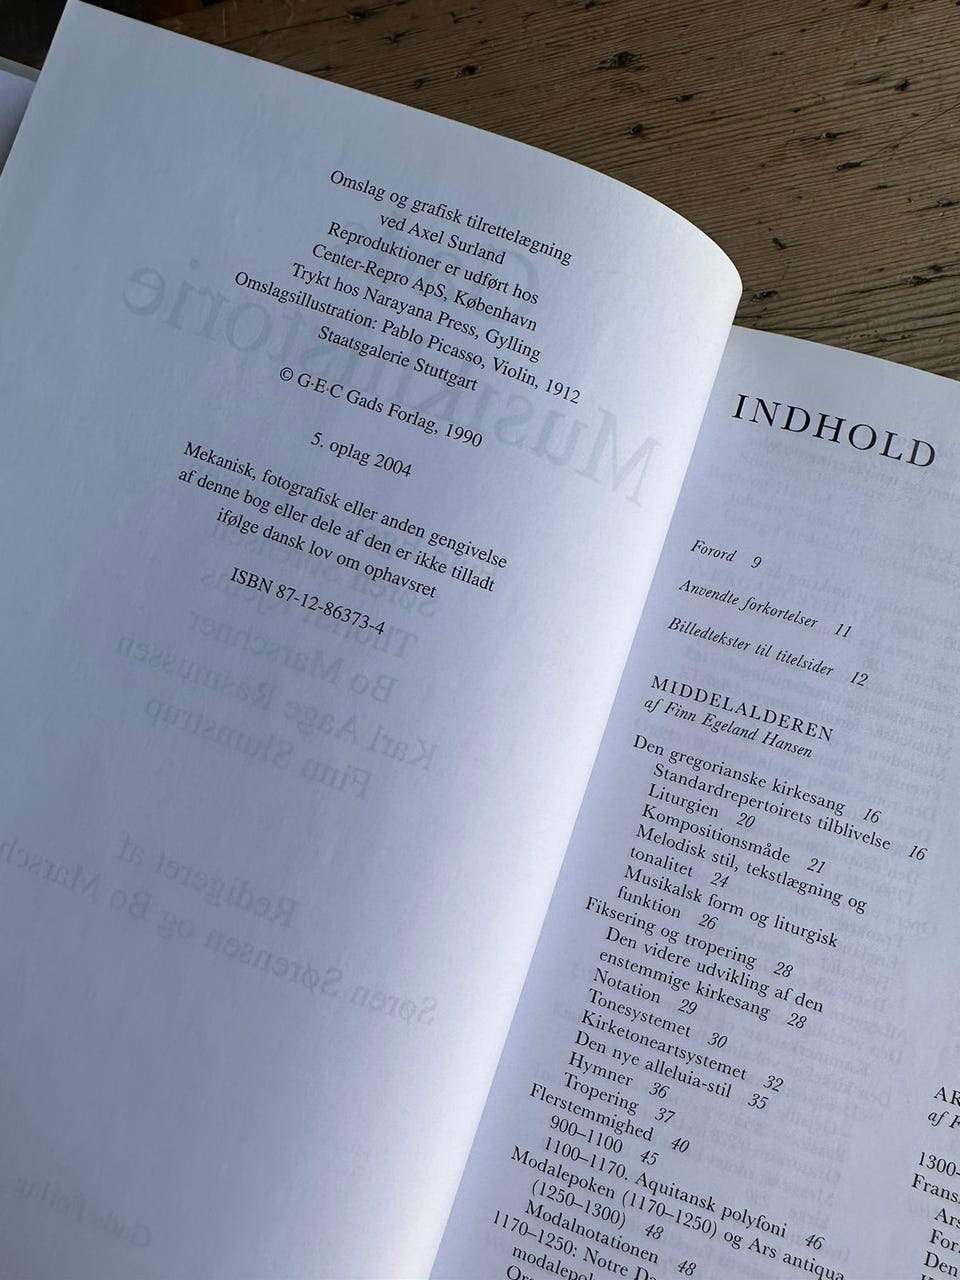 Omslag og grafisk tilrettelægning
ved Axel Surland
Reproduktioner er udført hos
Center-Repro ApS, København
Trykt hos Narayana Press, Gylling
Omslagsillustration: Pablo Picasso, Violin, 1912
Staatsgalerie Stuttgart
© G·E·C Gads Forlag, 1990
5. oplag 2004
Mekanisk, fotografisk eller anden gengivelse
af denne bog eller dele af den er ikke tilladt
ifølge dansk lov om ophavsret
ISBN 87-12-86373-4
Musikhistorie
Søren Sørensen
Bo Marschner
Karl Aage Rasmussen
Finn Slumstrup
Redigeret af
Søren Sørensen og Bo Marsch
Gads Forlag
INDHOLD
Forord 9
Anvendte forkortelser 11
Billedtekster til titelsider 12
MIDDELALDEREN
af Finn Egeland Hansen
Den gregorianske kirkesang 16
Standardrepertoirets tilblivelse 16
Liturgien 20
Kompositionsmåde 21
Melodisk stil, tekstlægning og
tonalitet 24
Musikalsk form og liturgisk
funktion 26
Fiksering og tropering 28
Den videre udvikling af den
enstemmige kirkesang 28
Notation 29
Tonesystemet 30
Kirketoneartsystemet 32
Den nye alleluia-stil 35
Hymner 36
Tropering 37
Flerstemmighed 40
900–1100 45
1100–1170. Aquitansk polyfoni 46
Modalepoken (1170–1250) og Ars antiqua
(1250–1300) 48
Modalnotationen 48
1170–1250: Notre Da
modalepok
Or
AR
af F
1300–
Frans
Ars
For
Den